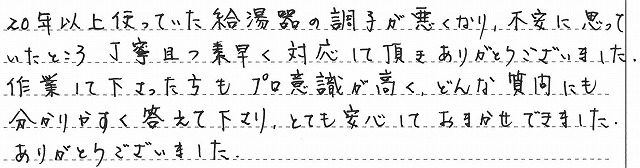 20年以上使っていた給湯器の調子が悪くなり、不安に思って
いたところ 丁寧且つ素早く対応して頂きありがとうございました。
作業して下さった方も プロ意識が高く、どんな質問にも
分かりやすく答えて下さり、とても安心しておまかせできました。
ありがとうございました。